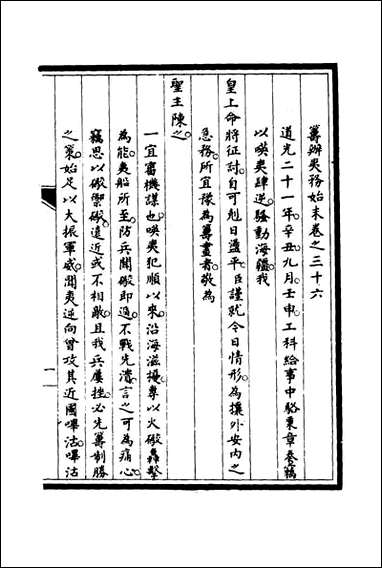 籌辦夷務始末卷之三十六
道光二十一年辛丑九月壬申工科給事中駱秉章奏竊
以㗆夷肆逆騷動海疆我
皇上命將征討自可剋日盪平臣謹就今日情形為攘外安內之
急務所宜豫為籌畫者敬為
聖主陳之
一宜審機謀也㗆夷犯順以來沿海滋擾專以火礮轟擊
為能夷船所至防兵聞礮即過不戰先潰言之可為痛心
竊思以礮禦礮遠近或不相敵且我兵屢挫必先籌制勝
之策始足以大振軍威聞夷逆向曾攻其近國嗶沽嗶沽
一